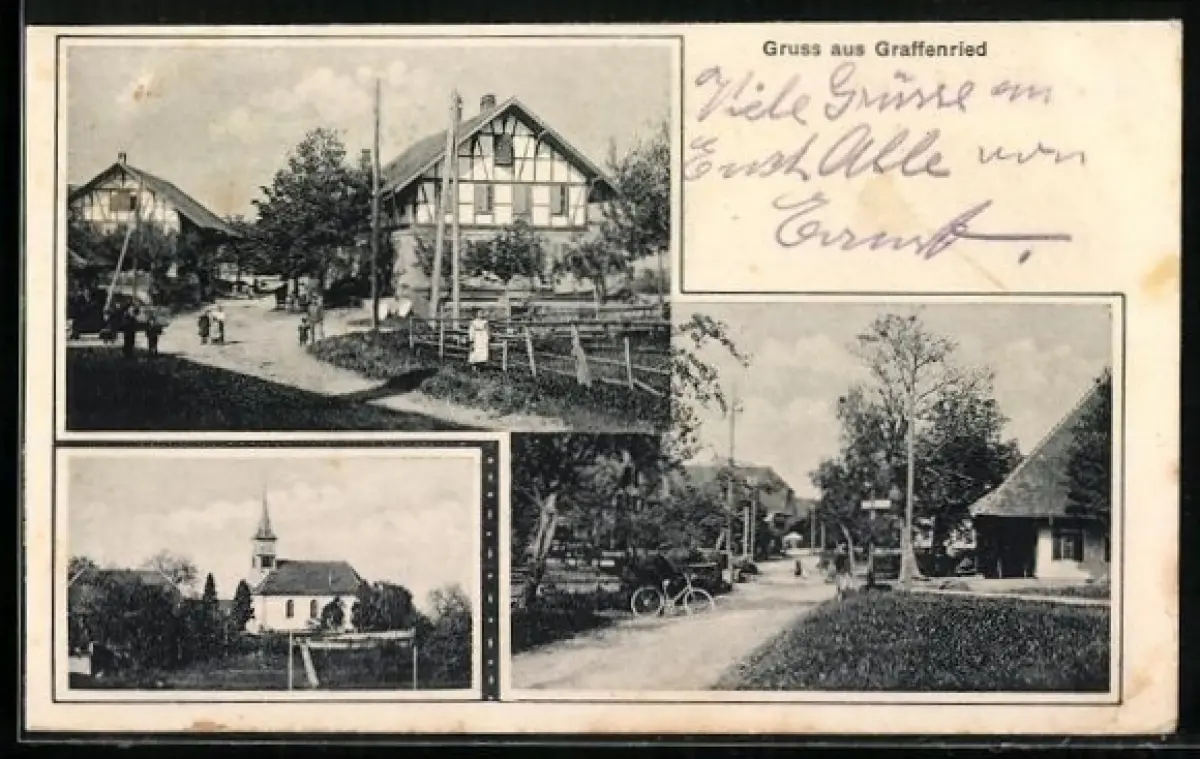 Gruss aus Graffenried
Viele Grüsse an
Euch Alle von
Ernst.